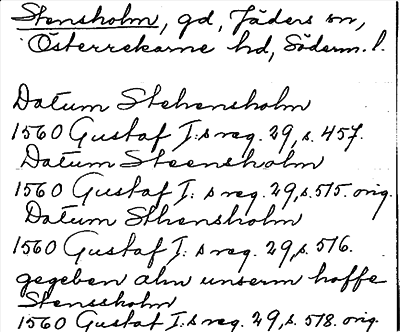 Stensholm, gd, Jäders sn,
Österrekarne hd, Söderm. l.
Datum Stehensholm
1560 Gustaf I:s reg. 29, s. 457.
Datum Steensholm
1560 Gustaf I:s reg. 29, s. 515. orig.
Datum Sthensholm
1560 Gustaf I:s reg. 29, s. 516.
gegeben ahn unserm hoffe
Stensskolm
1560 Gustaf I:s reg. 29, s. 518. orig.